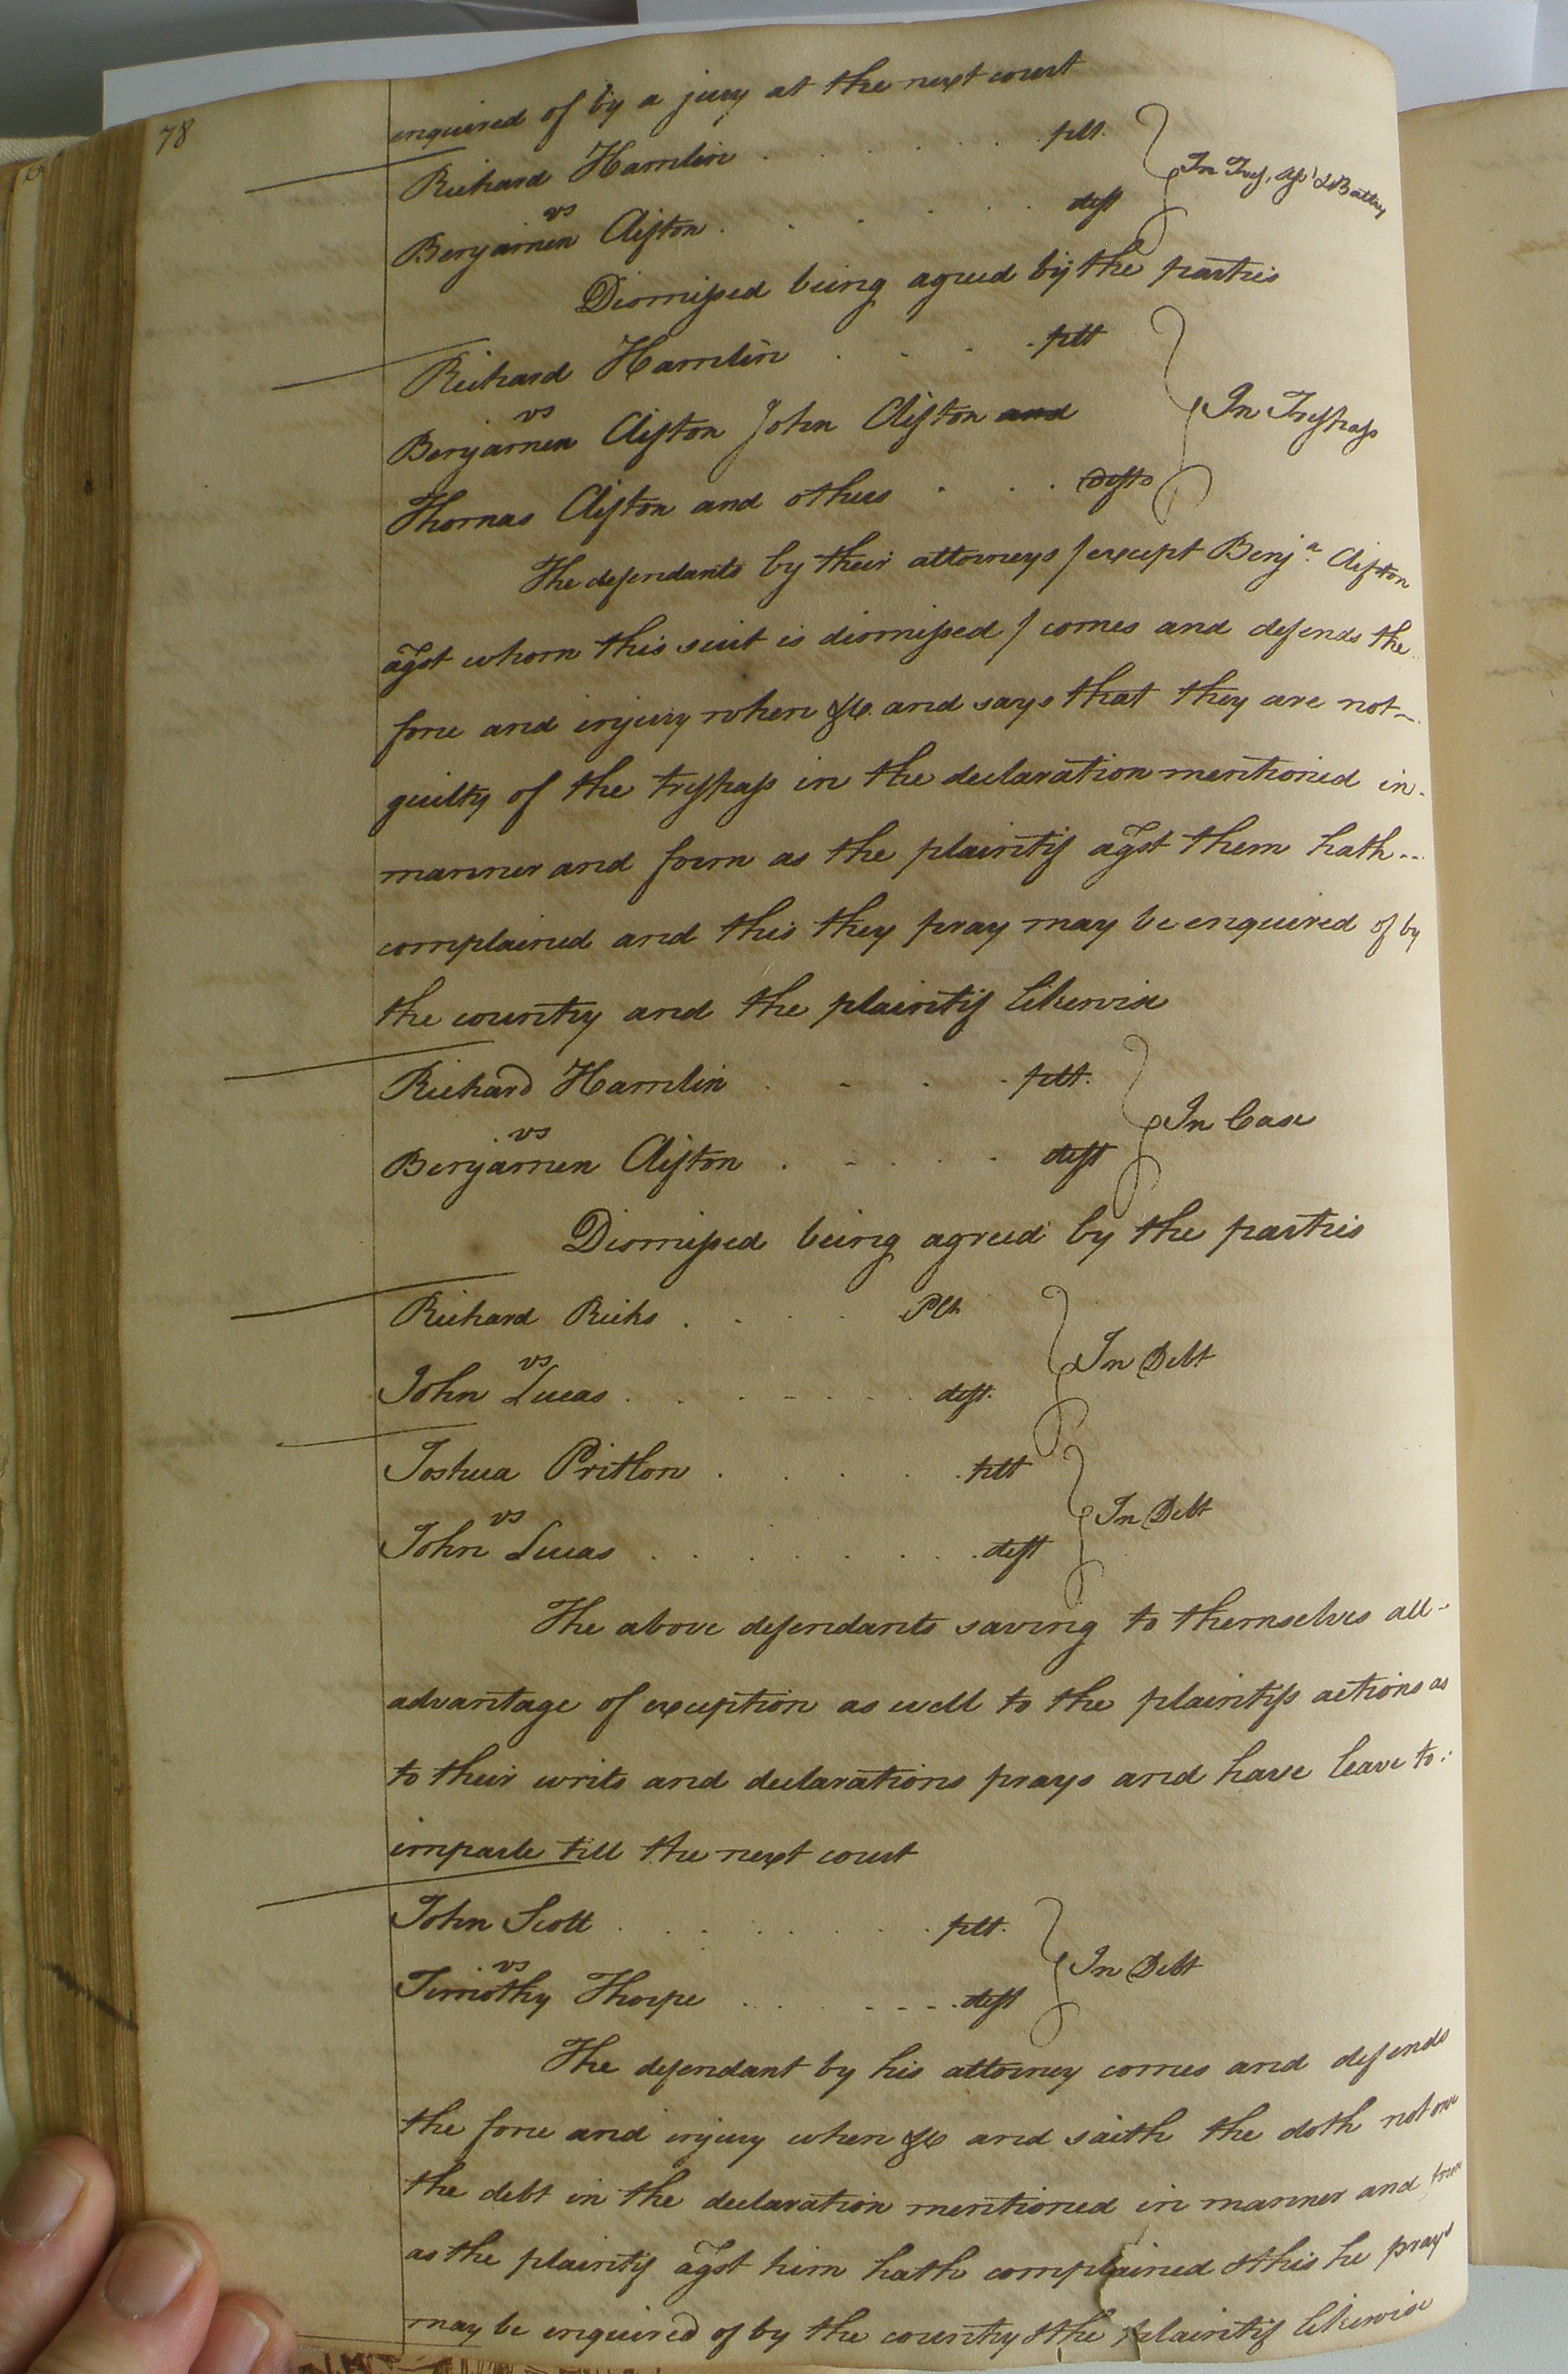 78
enquired of by a jury at the next court
Richard Hamlin . . . . . . plt.
vs
Benjamen Clifton . . . . . deft
In Tres, & Battery
Dismissed being agreed by the parties
Richard Hamlin . . . . plt
vs
Benjamen Clifton John Clifton and
In Trespass
Thomas Clifton and others . . . Defts
The defendants by their attorneys / except Benja. Clifton
agst whom this suit is dismissed / comes and defends the
force and injury when &c. and says that they are not
guilty of the trespass in the declaration mentioned in
manner and form as the plaintif agst them hath
complained and this they pray may be enquired of by
the country and the plaintif likewise
Richard Hamlin . . . . plt.
vs
In Case
Benjamen Clifton . . . . . deft
Dismissed being agreed by the parties
Richard Ricks . . . . Plt
vs
In Debt
John Lucas . . . . . . deft.
Joshua Pritlow . . . . . plt
vs
In Debt
John Lucas . . . . . . . deft
The above defendants saving to themselves all
advantage of exception as well to the plaintifs actions as
to their writs and declarations prays and have leave to
imparle till the next court
John Scott . . . . . . . plt.
vs
In Debt
Timothy Thorpe . . . . . . deft
The defendant by his attorney comes and defends
the force and injury when &c and saith the doth not owe
the debt in the declaration mentioned in manner and form
as the plaintif agst him hath complained & this he prays
may be enquired of by the country & the plaintif likewise